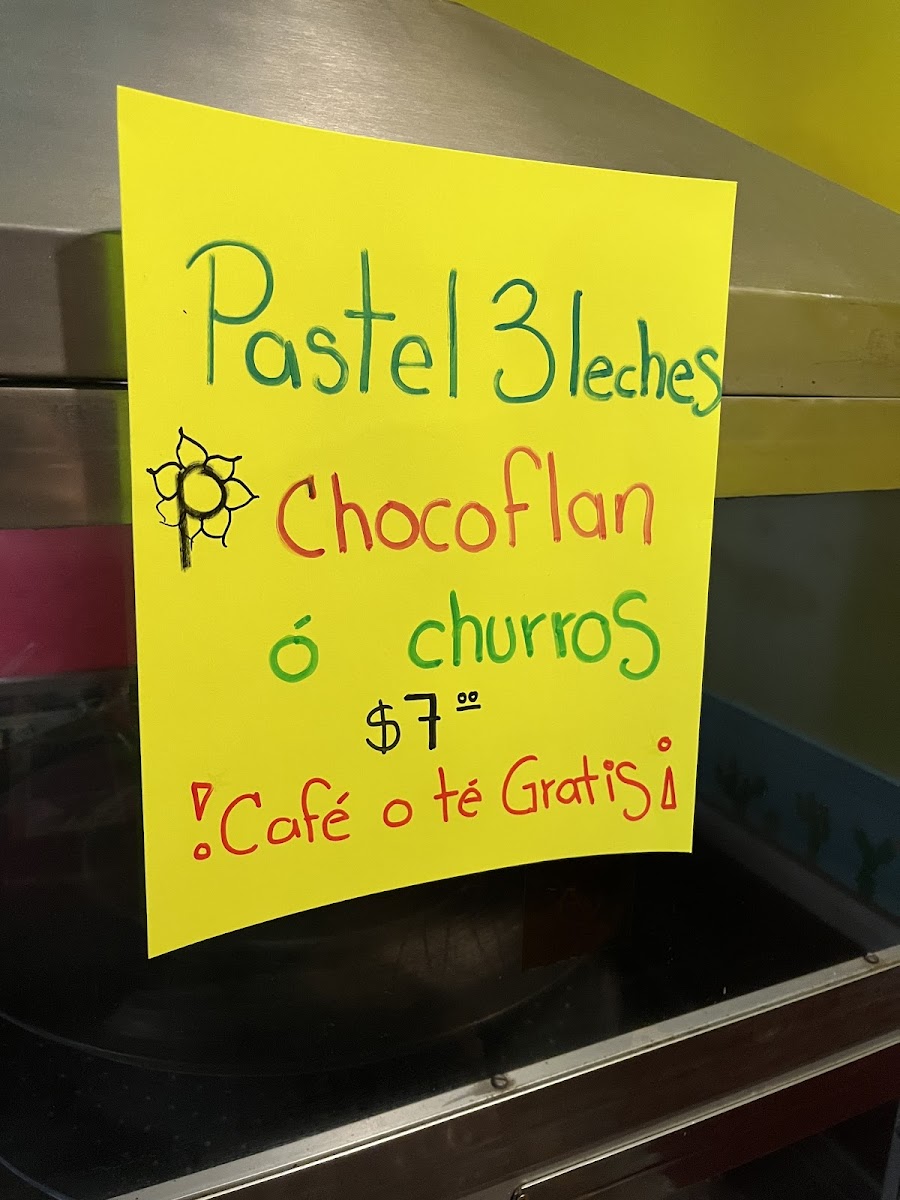 Pastel 3 leches
Chocoflan
ó churros
$7.00
!Café o té Gratis¡